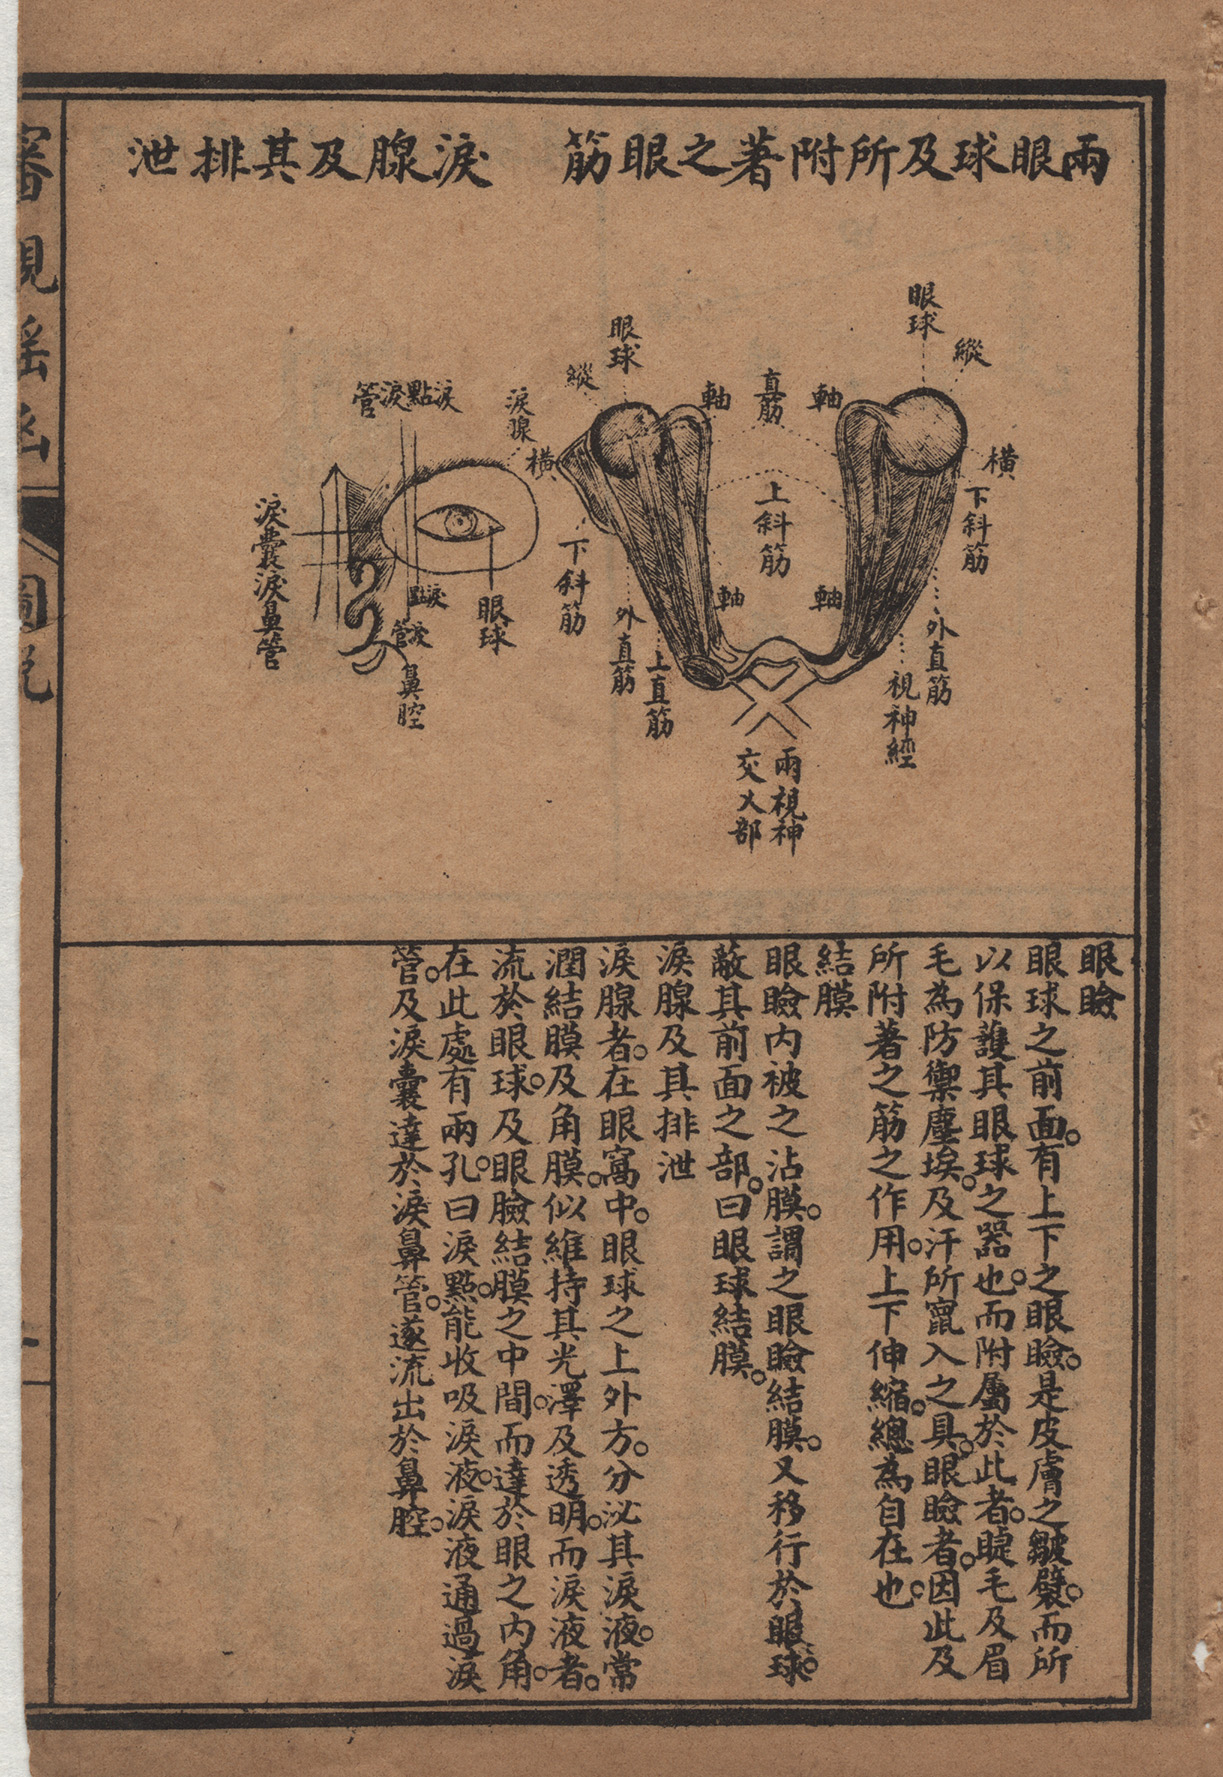 兩眼球及所附著之眼筋
淚腺及其排泄
眼球
縱
橫
下斜筋
外直筋
視神經
軸
直筋
軸
上斜筋
軸
軸
兩視神
交乂部
眼球
縱
橫
下斜筋
外直筋
上直筋
淚腺
淚點淚管
眼球
淚點
淚管
鼻腔
淚囊淚鼻管
眼瞼
眼球之前面。有上下之眼瞼。是皮膚之皺襞。而所
以保護其眼球之器也。而附屬於此者。睫毛及眉
毛為防禦塵埃。及汗所竄入之具。眼瞼者。因此及
所附著之筋之作用。上下伸縮。總為自在也。
結膜
眼瞼內被之沾膜。謂之眼瞼結膜。又移行於眼球。
蔽其前面之部。曰眼球結膜。
淚腺及其排泄
淚腺者。在眼窩中。眼球之上外方。分泌其淚液。常
潤結膜及角膜。似維持其光澤及透明。而淚液者。
流於眼球。及眼臉結膜之中間。而達於眼之內角。
在此處有兩孔。曰淚點。能收吸淚液。淚液通過淚
管。及淚囊達於淚鼻管。遂流出於鼻腔。
圖說